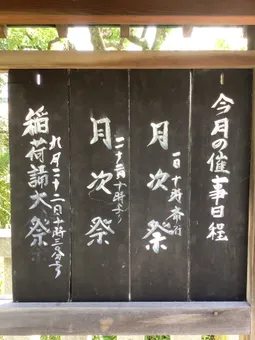 今月の催事日程
月次祭
一日十時斎行
月次祭
二十二日十時
稲荷講大祭
九月二十二日十時三〇分